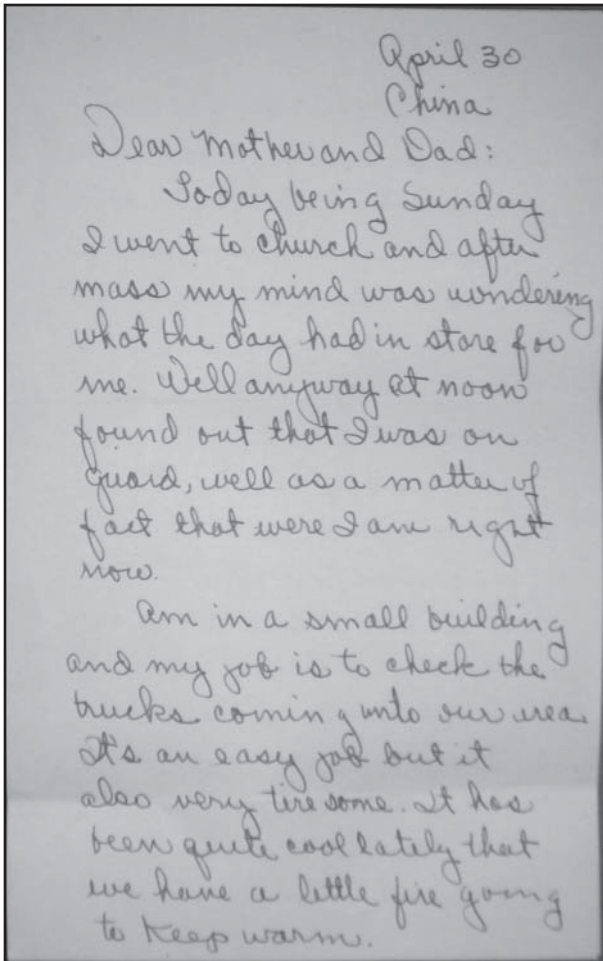 April 30
China
Dear Mother and Dad:
Today being Sunday
I went to church and after
mass my mind was wondering
what the day had in store for
me. Well anyway at noon
found out that I was on
guard, well as a matter of
fact that were I am right
now.
Am in a small building
and my job is to check the
trucks coming into our area
It's an easy job but it
also very tire some. It has
been quite cool lately that
we have a little fire going
to keep warm.